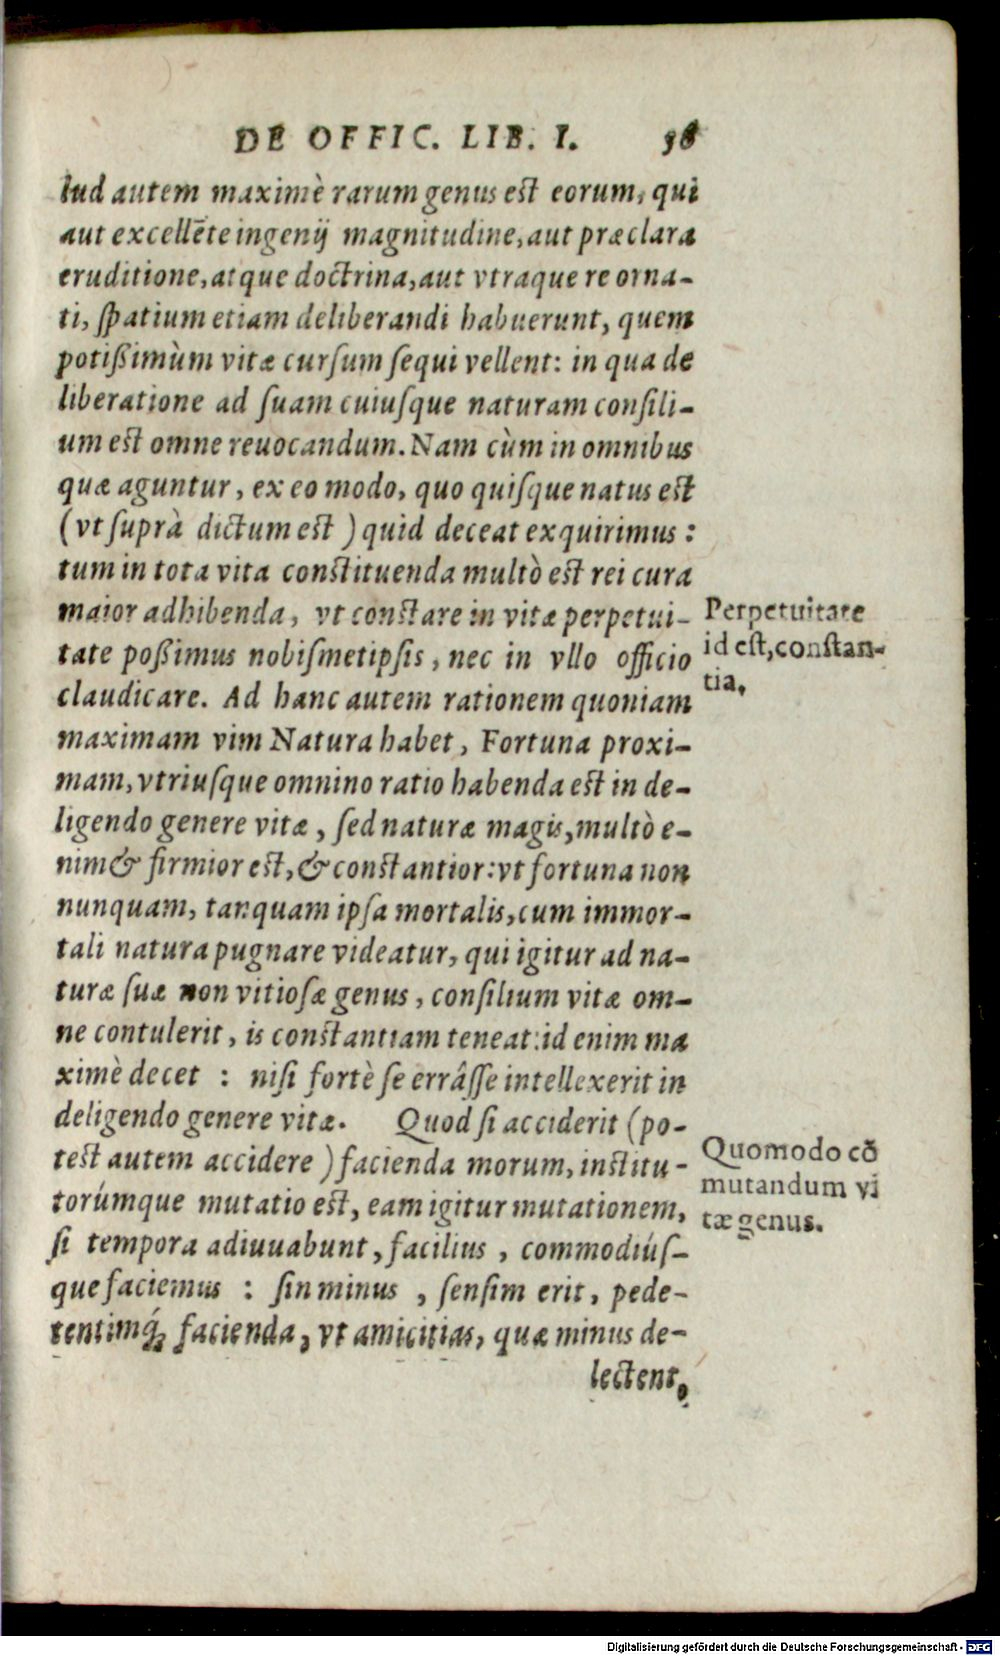 DE OFFIC. LIB. I. 38
lud autem maximè rarum genus est eorum, qui
aut excellēte ingenij magnitudine, aut præclara
eruditione, atque doctrina, aut vtraque re orna-
ti, spatium etiam deliberandi habuerunt, quem
potißimùm vitæ cursum sequi vellent: in qua de
liberatione ad suam cuiusque naturam consili-
um est omne reuocandum. Nam cùm in omnibus
quæ aguntur, ex eo modo, quo quisque natus est
(vt suprà dictum est) quid deceat exquirimus:
tum in tota vita constituenda multò est rei cura
maior adhibenda, vt constare in vitæ perpetui-
tate poßimus nobismetipsis, nec in vllo officio
claudicare. Ad hanc autem rationem quoniam
maximam vim Natura habet, Fortuna proxi-
mam, vtriusque omnino ratio habenda est in de-
ligendo genere vitæ, sed naturæ magis, multò e-
nim & firmior est, & constantior: vt fortuna non
nunquam, tanquam ipsa mortalis, cum immor-
tali natura pugnare videatur, qui igitur ad na-
turæ suæ non vitiosæ genus, consilium vitæ om-
ne contulerit, is constantiam teneat: id enim ma
ximè decet : nisi fortè se errâsse intellexerit in
deligendo genere vitæ. Quod si acciderit (po-
test autem accidere) facienda morum, institu-
torúmque mutatio est, eam igitur mutationem,
si tempora adiuuabunt, facilius, commodiús-
que faciemus : sin minus, sensim erit, pede-
tentimq́; facienda, vt amicitias, quæ minus de-
lectent,
Perpetuitate
id est, constan-
tia.
Quomodo cō
mutandum vi
tæ genus.
Digitalisierung gefördert durch die Deutsche Forschungsgemeinschaft - DFG